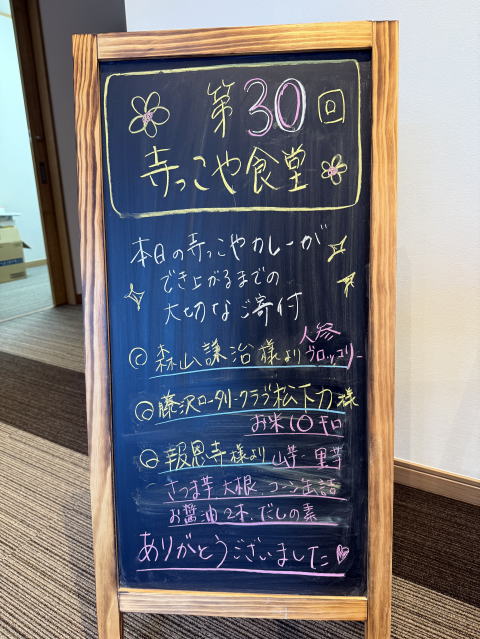 第30回
寺っこや食堂
本日の寺っこやカレーが
でき上がるまでの
大切なご寄付
森山謙治様より 人参 ブロッコリー
藤沢ロータリークラブ松下力様
お米10キロ
報恩寺様より 山芋・里芋
さつま芋 大根、コーン缶詰
お醤油2本、だしの素
ありがとうございました